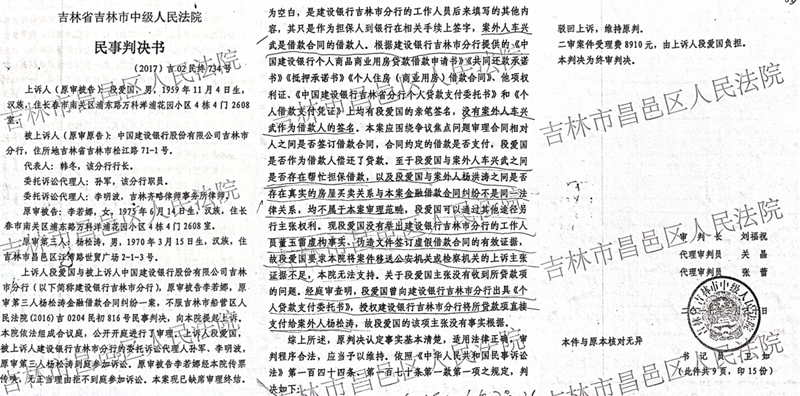 吉林省吉林市中级人民法院
民事判决书
（2017）吉02民终734号
上诉人（原审被告）：段爱国，男，1959年11月4日生，
汉族，住长春市南关区浦东路万科洋浦花园小区4栋4门2608
室。
被上诉人（原审原告）：中国建设银行股份有限公司吉林市
分行，住所地吉林省吉林市松江路71-1号。
代表人：韩冬，该分行行长。
委托诉讼代理人：孙军，该分行职员。
委托诉讼代理人：李明波，吉林齐略律师事务所律师。
原审被告：李若娜，女，1975年6月14日生，汉族，住长
春市南关区浦东路万科洋浦花园小区4栋4门2608室。
原审第三人：杨松涛，男，1970年3月15日生，汉族，住
吉林市昌邑区江湾路世贸广场2-1-3号。
上诉人段爱国与被上诉人中国建设银行股份有限公司吉林市
分行（以下简称建设银行吉林市分行），原审被告李若娜，原
审第三人杨松涛金融借款合同纠纷一案，不服吉林市船营区人
民法院(2016)吉0204民初816号民事判决，向本院提起上诉。
本院依法组成合议庭，公开开庭进行了审理。上诉人段爱国、
被上诉人建设银行吉林市分行的委托诉讼代理人孙军、李明波，
原审第三人杨松涛到庭参加诉讼。原审被告李若娜经本院传票
传唤，无正当理由拒不到庭参加诉讼。本案现已缺席审理终结。
为空白，是建设银行吉林市分行的工作人员后来填写的其他内
容，其只是作为担保人到银行在相关手续上签字，案外人车兴
武是借款合同的借款人。根据建设银行吉林市分行提供的《中
国建设银行个人商品商业用房贷款借款申请书》《共同还款承诺
书》《抵押承诺书》《个人住房（商业用房）借款合同》、他项权
利证、《中国建设银行吉林省分行个人贷款支付委托书》和《个
人借款支付凭证》上均有段爱国的亲笔签名，没有案外人车兴
武作为借款人的签名。本案应围绕争议焦点问题审理合同相对
人之间是否签订借款合同，合同约定的借款是否支付，段爱国
是否作为借款人偿还了贷款。至于段爱国与案外人车兴武之间
是否存在帮忙担保借款，以及段爱国与案外人杨洪涛之间是否
存在真实的房屋买卖关系与本案金融借款合同纠纷不是同一法
律关系，均不属于本案审理范畴，段爱国可以通过其他途径另
行主张权利。现段爱国没有举出建设银行吉林市分行的工作人
员董玉苗虚构事实、伪造文件签订虚假借款合同的有效证据，
故段爱国要求本院将案件移送公安机关或检察机关的上诉主张
证据不足，本院无法支持。关于段爱国主张没有收到所贷款项
的问题。经庭审查明，段爱国曾向建设银行吉林市分行出具《个
人贷款支付委托书》，授权建设银行吉林市分行将所贷款项直接
支付给案外人杨松涛，故段爱国的该项主张没有事实根据。
综上所述，原判决认定事实基本清楚，适用法律正确，审
判程序合法，应当予以维持。依照《中华人民共和国民事诉讼
法》第一百四十四条、第一百七十条第一款第一项之规定，判
决如下：
驳回上诉，维持原判。
二审案件受理费8910元，由上诉人段爱国负担。
本判决为终审判决。
审判长 刘福祝
代理审判员 关晶
代理审判员 张蕾
本件与原本核对无异
书记员 卫如
（此件共9页，印15份）
吉林市昌邑区人民法院
吉林市昌邑区人民法院
吉林市昌邑区人民法院
吉林市昌邑区人民法院